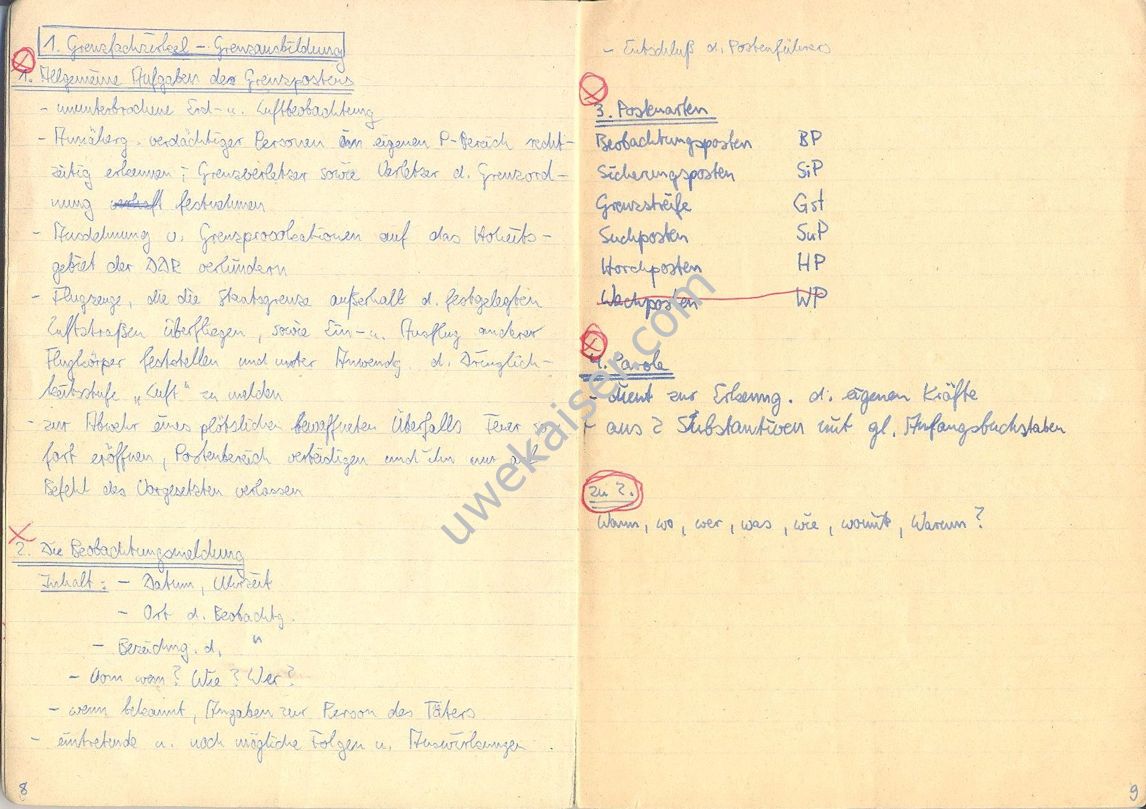 1. Grenzfachzirkel - Grenzausbildung
1. Allgemeine Aufgaben des Grenzpostens
- ununterbrochene Erd- u. Luftbeobachtung
- Annäherg. verdächtiger Personen im eigenen P-Bereich recht-
zeitig erkennen; Grenzverletzer sowie Verletzer d. Grenzord-
nung festnehmen
- Ausdehnung v. Grenzprovokationen auf das Hoheits-
gebiet der DDR verhindern
- Flugzeuge, die die Staatsgrenze außerhalb d. festgelegten
Luftstraßen überfliegen, sowie Ein- u. Ausflug anderer
Flugkörper feststellen und unter Anwendg. d. Dringlich-
keitsstufe „Luft" zu melden
- zur Abwehr eines plötzlichen bewaffneten Überfalls Feuer
fort eröffnen, Postenbereich verteidigen und ihn nur a
Befehl des Vorgesetzten verlassen
2. Die Beobachtungsmeldung
Inhalt: - Datum, Uhrzeit
- Ort d. Beobachtg.
- Bezeichng. d. "
- Vom wem? Wie? Wer?
- wenn bekannt, Angaben zur Person des Täters
- eintretende u. noch mögliche Folgen u. Auswirkungen.
8
- Entschluß d. Postenführers
3. Postenarten
Beobachtungsposten BP
Sicherungsposten SiP
Grenzstreife Gst
Suchposten SuP
Horchposten HP
Wachposten WP
4. Parole
- dient zur Erkenng. d. eigenen Kräfte
- aus 2 Substantiven mit gl. Anfangsbuchstaben
zu 2.
Wann, wo, wer, was, wie, womit, Warum?
9
uwekaiser.com